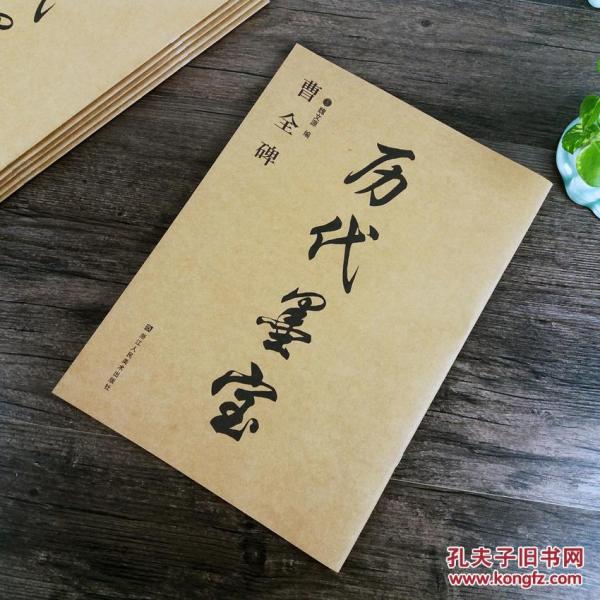 历代墨宝
曹全碑
魏文源 编
浙江人民美术出版社
孔夫子旧书网
www.kongfz.com